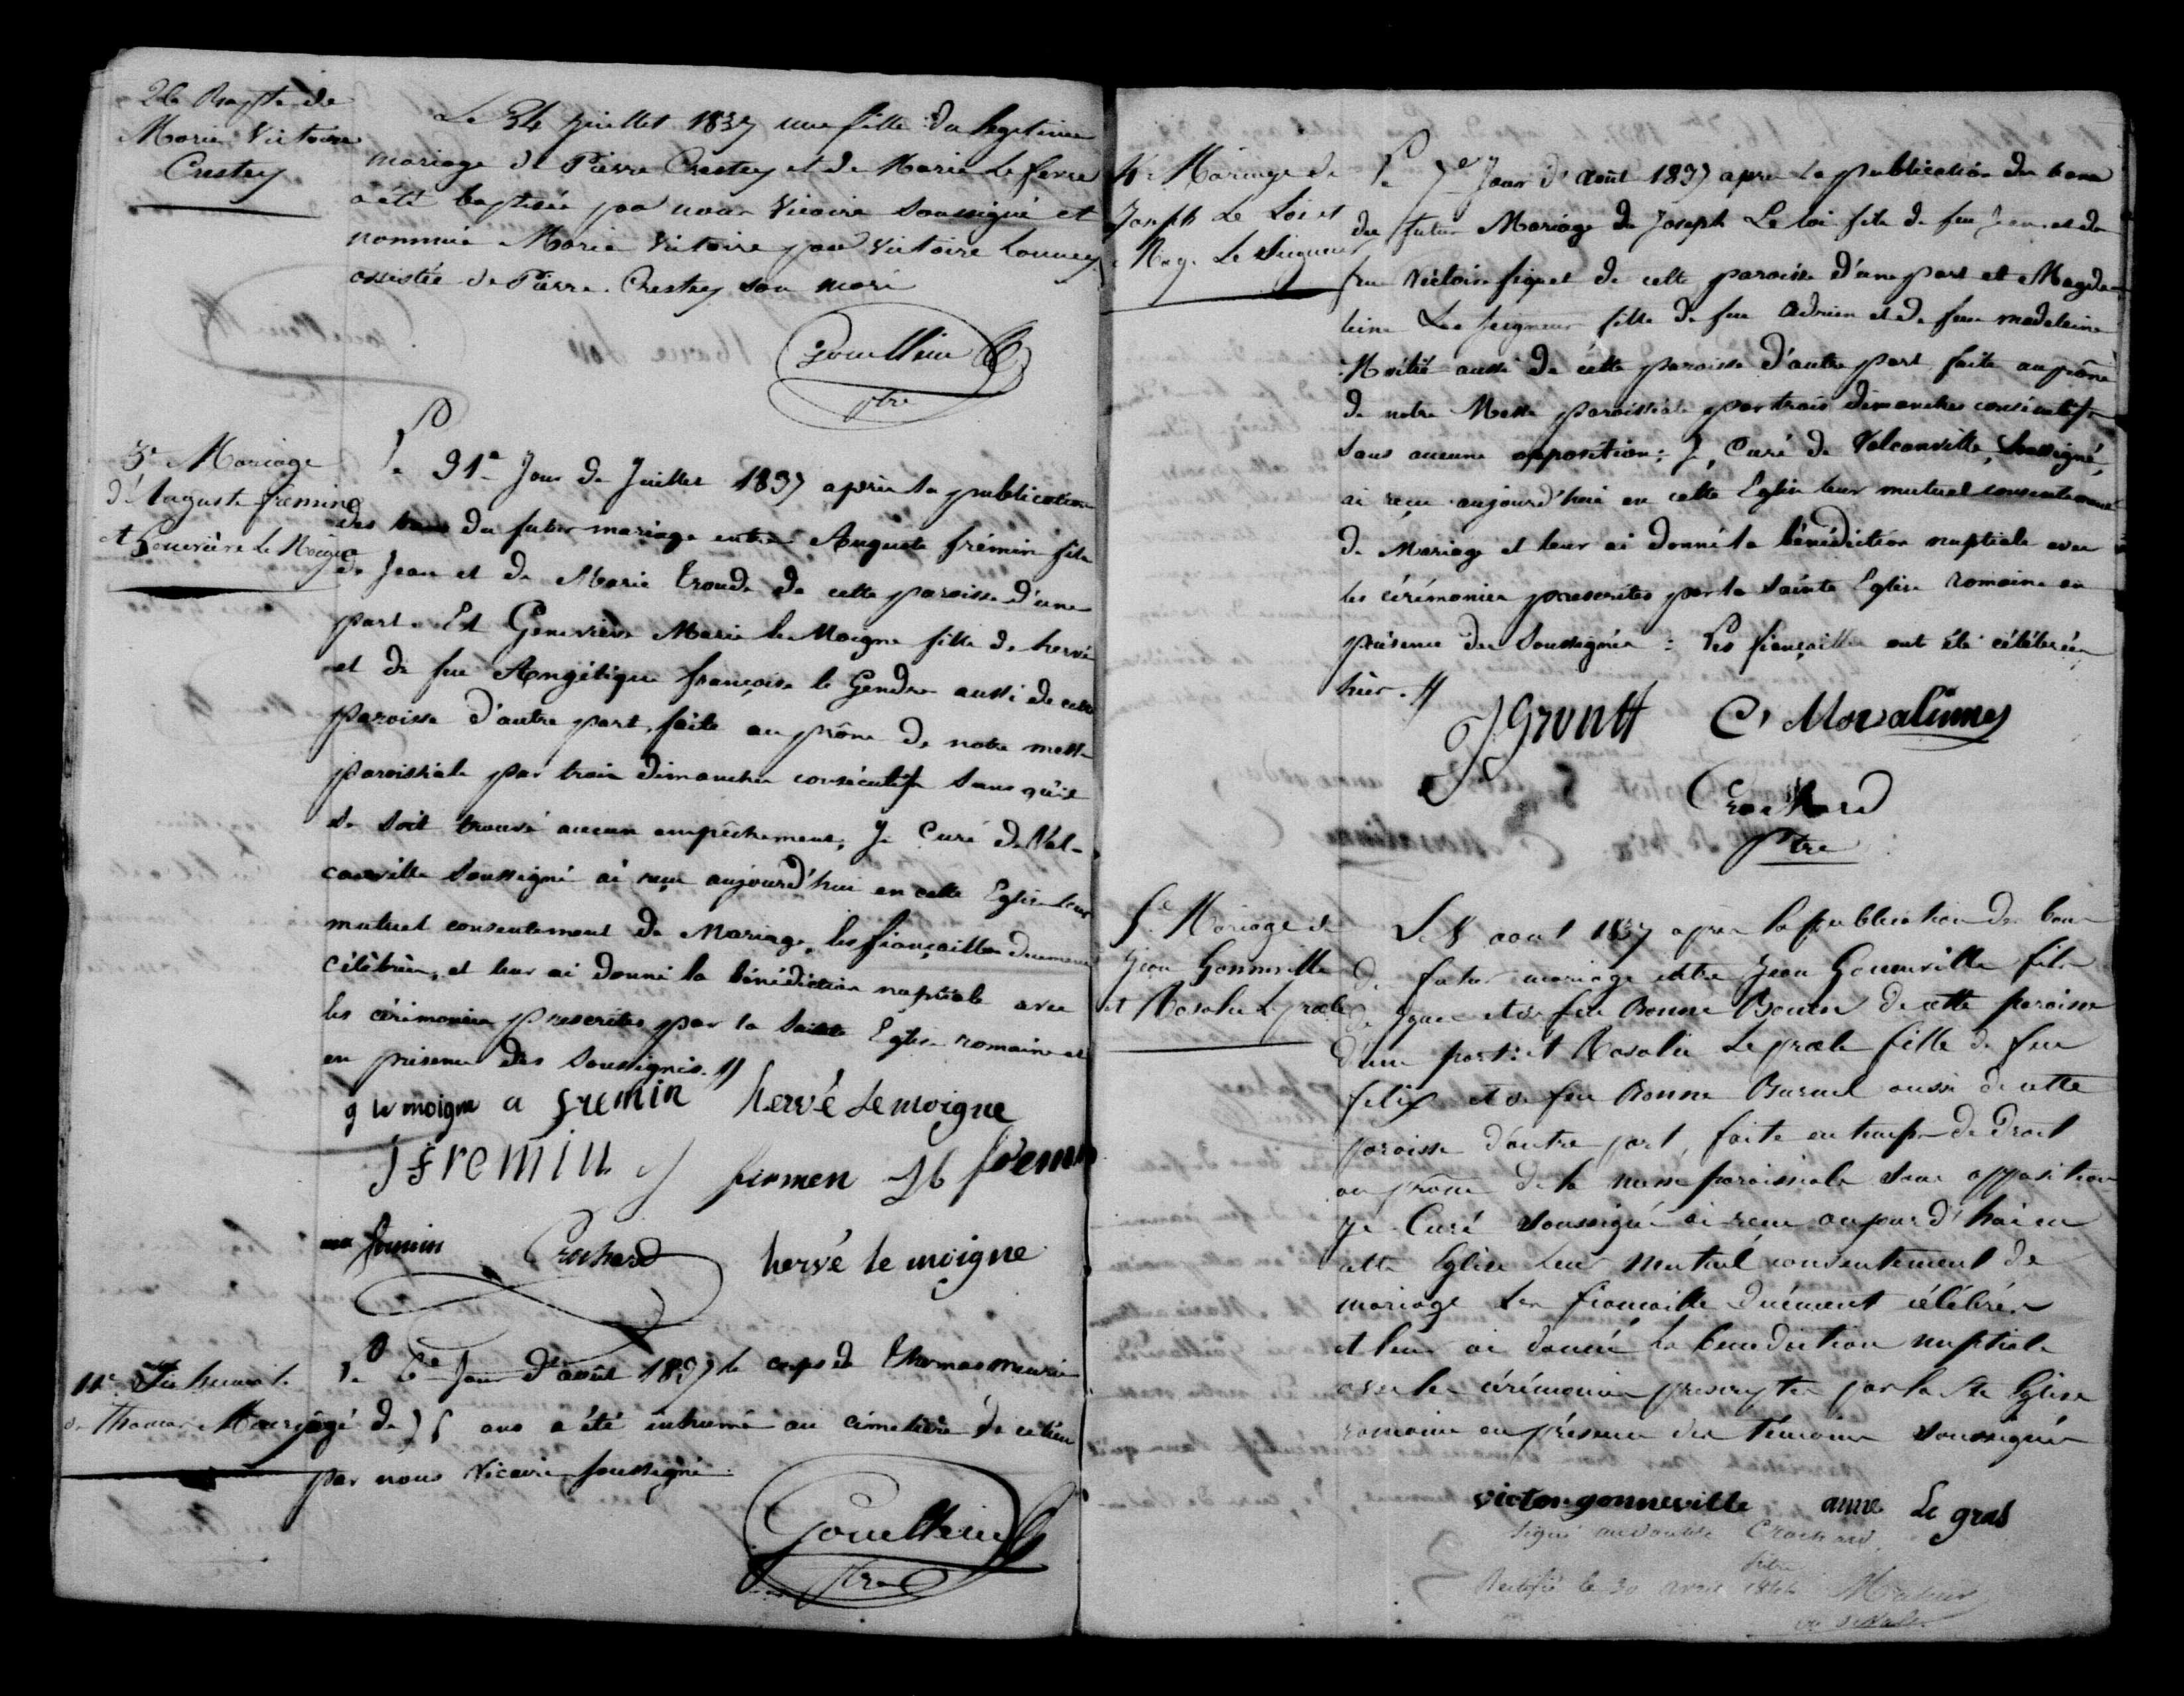 26 Bapte de
Marie Victoire
Crestey
Le 24 juillet 1837 une fille du legitime
mariage de Pierre Crestey et de Marie Lefevre
a été baptisée par nous Vicaire Soussigné et
nommée Marie Victoire par Victoire
assistée de Pierre Crestey son mari
ptre
3e Mariage
d'Auguste fremine
et Genevière Le Moigne
Le 31e Jour de Juillet 1837 après la publication
des bans du futur mariage entre Auguste frémin fils
de Jean et de Marie troude de cette paroisse d'une
part. Et Geneviève Marie le Moigne fille de hervé
et de feu Angélique françoise le Gendre aussi de cette
paroisse d'autre part, faite au prône de notre messe
paroissiale par trois dimanches consécutifs sans qu'il
se soit trouvé aucun empêchement, Je Curé de Val-
canville soussigné ai reçu aujourd'hui en cette Eglise leur
mutuel consentement de Mariage, les fiançailles duement
célébrées, et leur ai donné la bénédiction nuptiale avec
les cérémonies prescrites par la sainte Église romaine et
en présence des soussignés. //
g le moigne a fremin hervé Lemoigne
J fremin firmen
fremin Crochard hervé le moigne
11e Inhumat.
de Thomas
Le 6e Jour d'août 1837 le corps de thomas
âgé de 75 ans a été inhumé au cimetière de ce lieu
par nous Vicaire soussigné.
ptre
4e Mariage de
Joseph Le Loi et
Mag. Le Seigneur
Le 7e Jour d'août 1837 après la publication des bans
du futur Mariage de Joseph Le loi fils de feu Jean et de
feu Victoire fiquet de cette paroisse d'une part et Magde-
leine Le Seigneur fille de feu Adrien et de feu madeleine
aussi de cette paroisse d'autre part faite au prône
de notre Messe paroissiale par trois dimanches consécutifs
sans aucune opposition; Je, Curé de Valcanville, Soussigné,
ai reçu aujourd'hui en cette Eglise leur mutuel consentement
de Mariage et leur ai donné la bénédiction nuptiale avec
les cérémonies prescrites par la Sainte Eglise Romaine en
présence des Soussignés : Les fiançailles ont été célébrées
hier. //
C. Moralinnes
Crochard
Ptre
5e Mariage de
Jean Gonneville
et Rosalie Lepræle
Le 8 aout 1837 apres la publication des bans
de futur mariage entre Jean Gonneville fils
de et de feu Bonne de cette paroisse
d'une part: et Rosalie Lepræle fille de feu
felix et de feu Bonne Burnel aussi de cette
paroisse d'autre part, faite en temps de Droit
au prône de la messe paroissiale sans opposition
Je Curé soussigné ai recu aujourd'hui en
cette Eglise leur mutuel consentement de
mariage les fiancaille duément célébrées
et leur ai donné la benediction nuptiale
avec les cérémonies prescrytes par la Ste Eglise
romaine en présence des témoins soussignés
victor gonneville anne Le gras
signé au double Crochard
ptre
le 30 avril